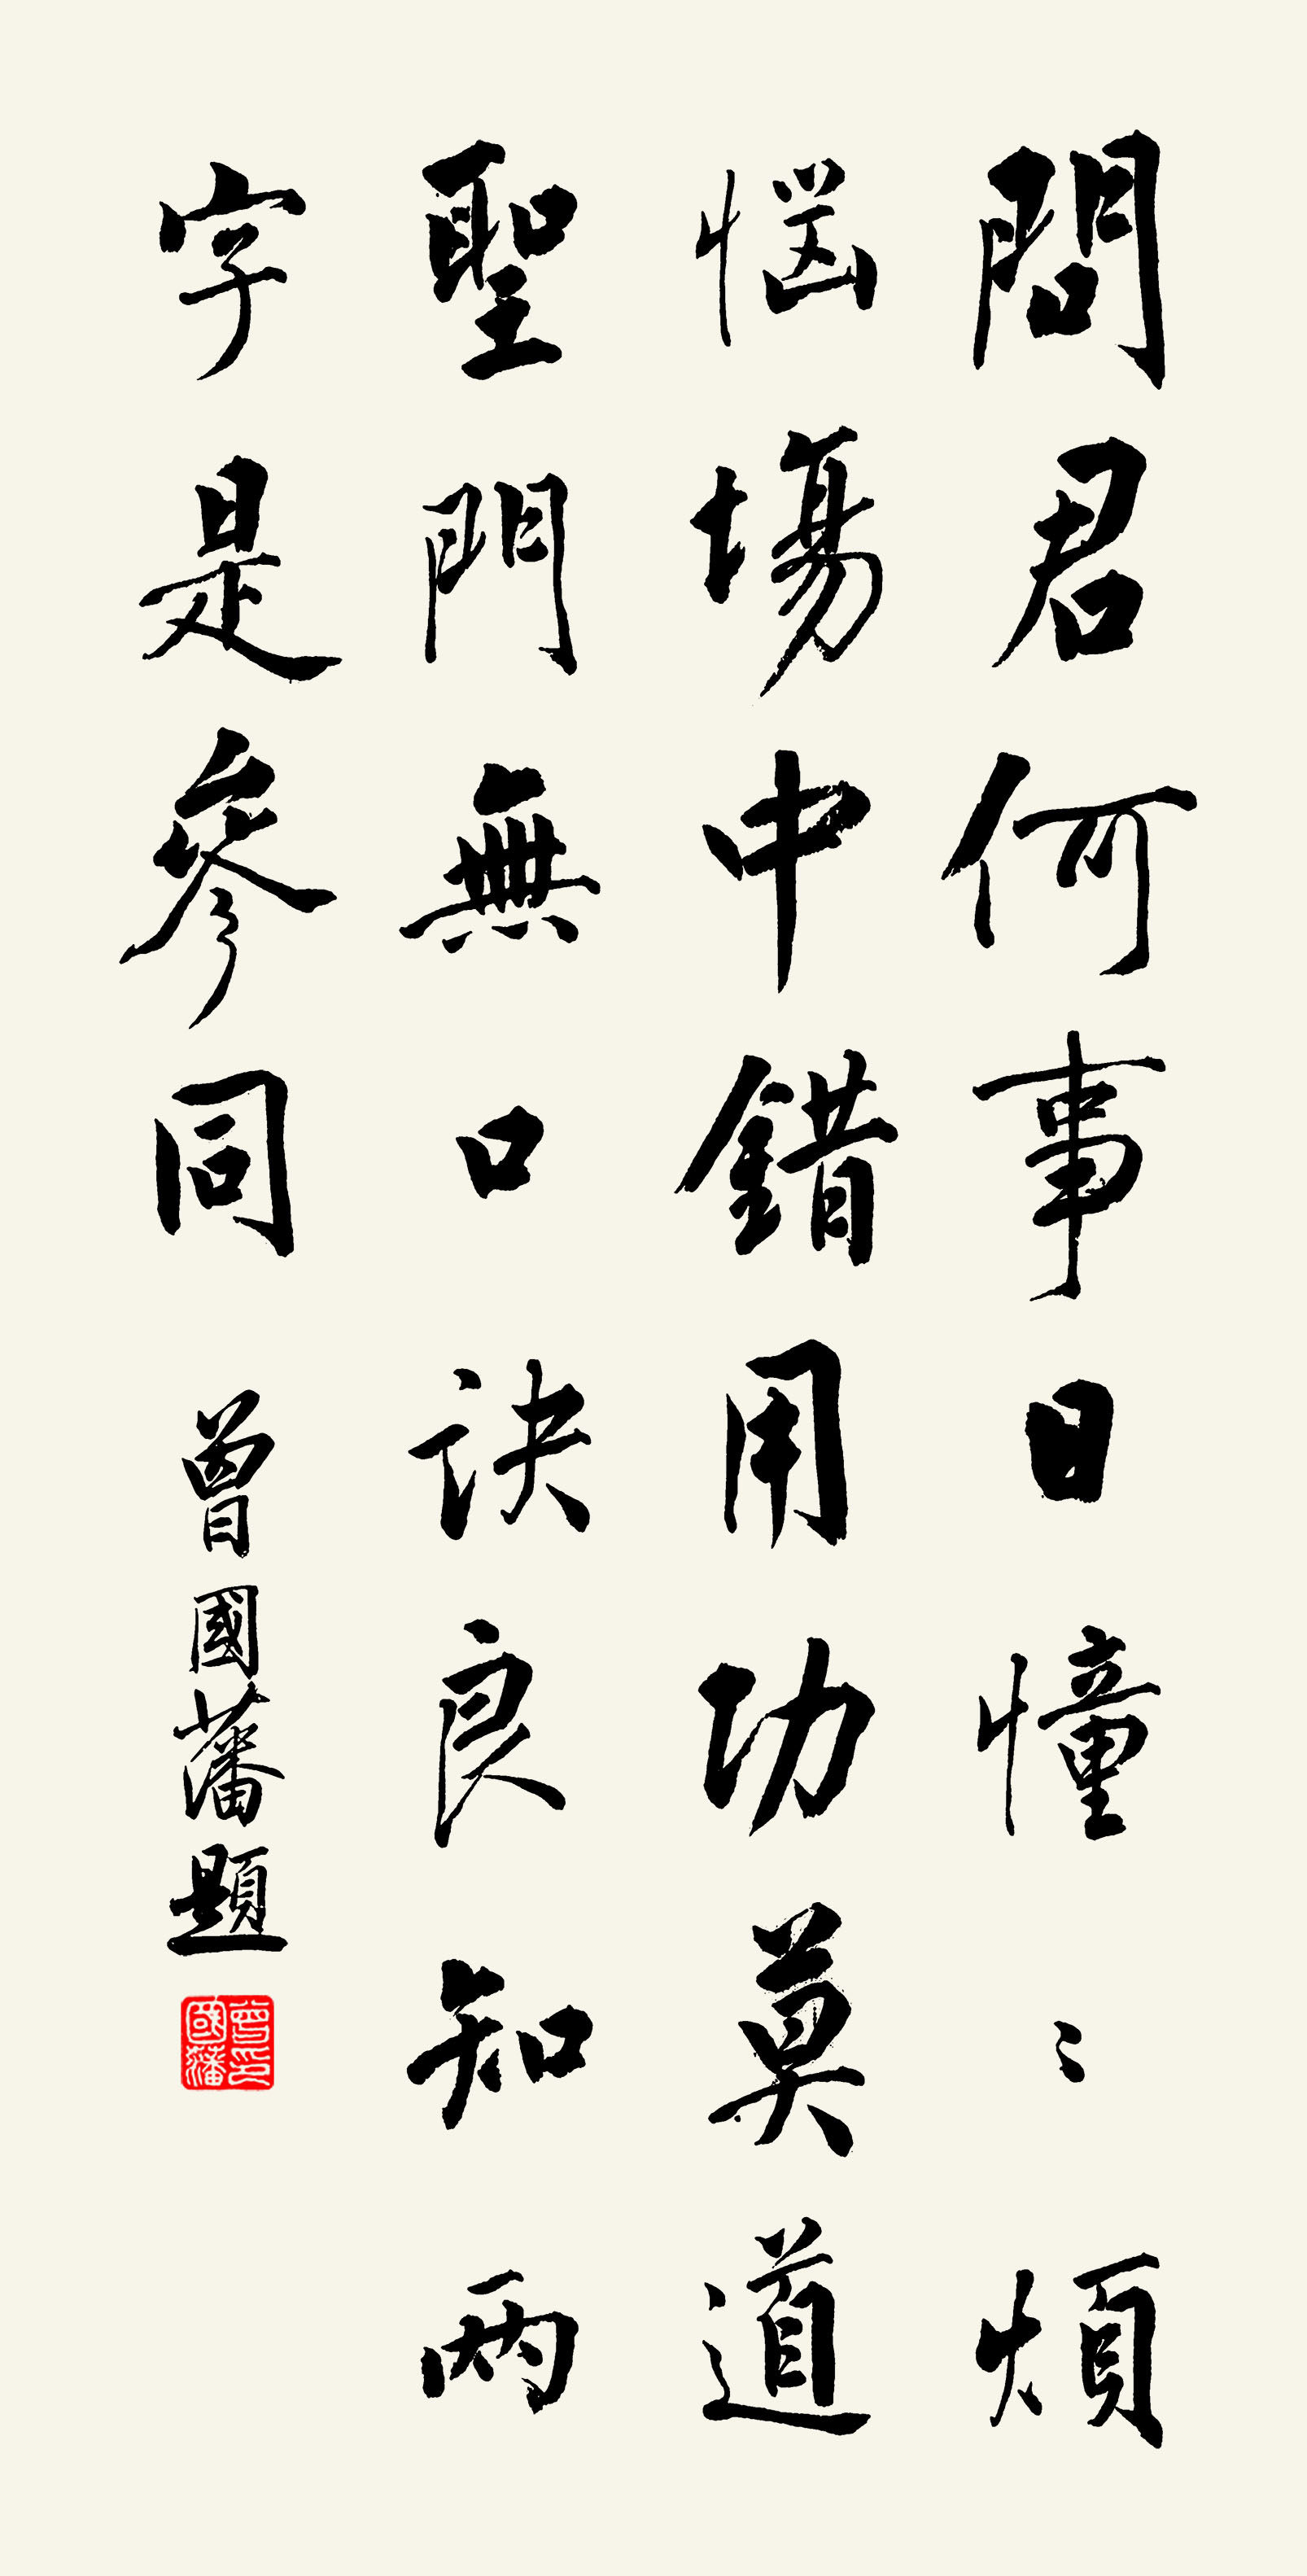 問君何事日憧〻煩
惱場中錯用功莫道
聖門無口訣良知兩
字是參同
曾國藩題
曾國藩印